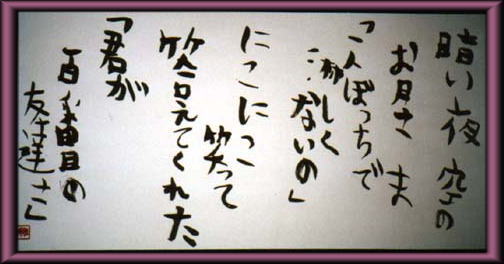 暗い夜空の
お月さま
「一人ぼっちで
淋しくないの」
にこにこ笑って
答えてくれた
「君が
百番目の
友達さ」